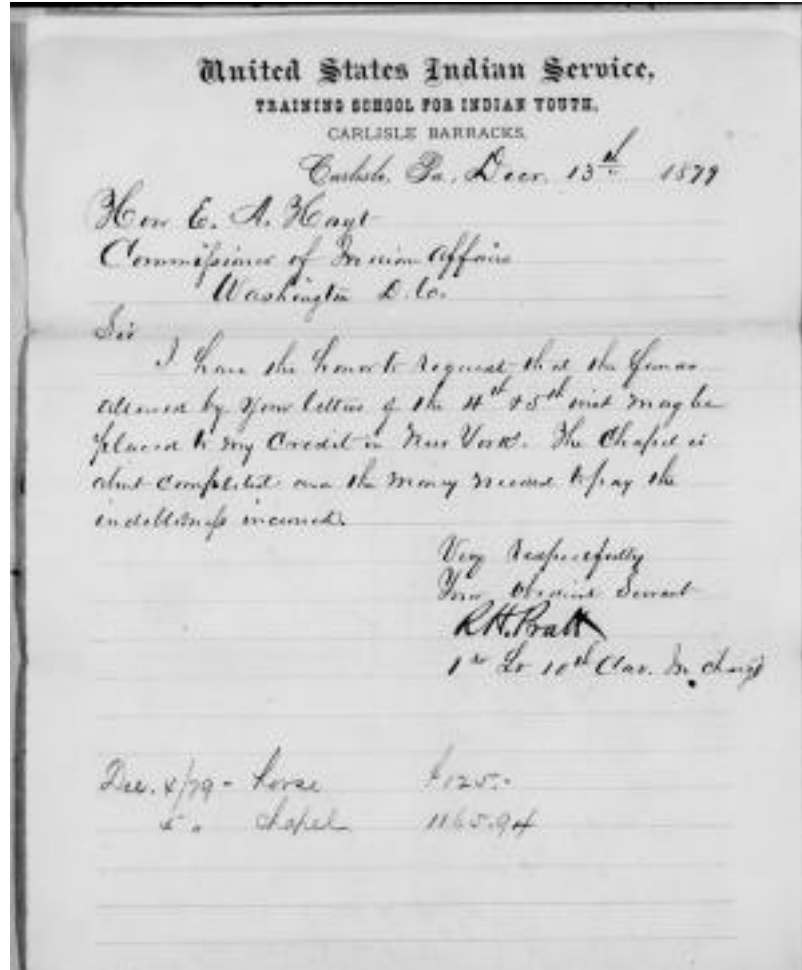 United States Indian Service,
TRAINING SCHOOL FOR INDIAN YOUTH,
CARLISLE BARRACKS,
Carlisle, Pa, Decr. 13th 1879
Hon E. A. Hayt
Commissioner of Indian Affairs
Washington D. C.
Sir
I have the honor to request that the funds
allowed by your letters of the 4th & 5th inst may be
placed to my Credit in New York. The Chapel is
about completed and the money needed to pay the
indebtedness incurred.
Very Respectfully
Your Obedient Servant
R. H. Pratt
1st Lt 10th Cav. In charge
Dec. 4/79 - horse $125.-
5 " chapel 1165.94